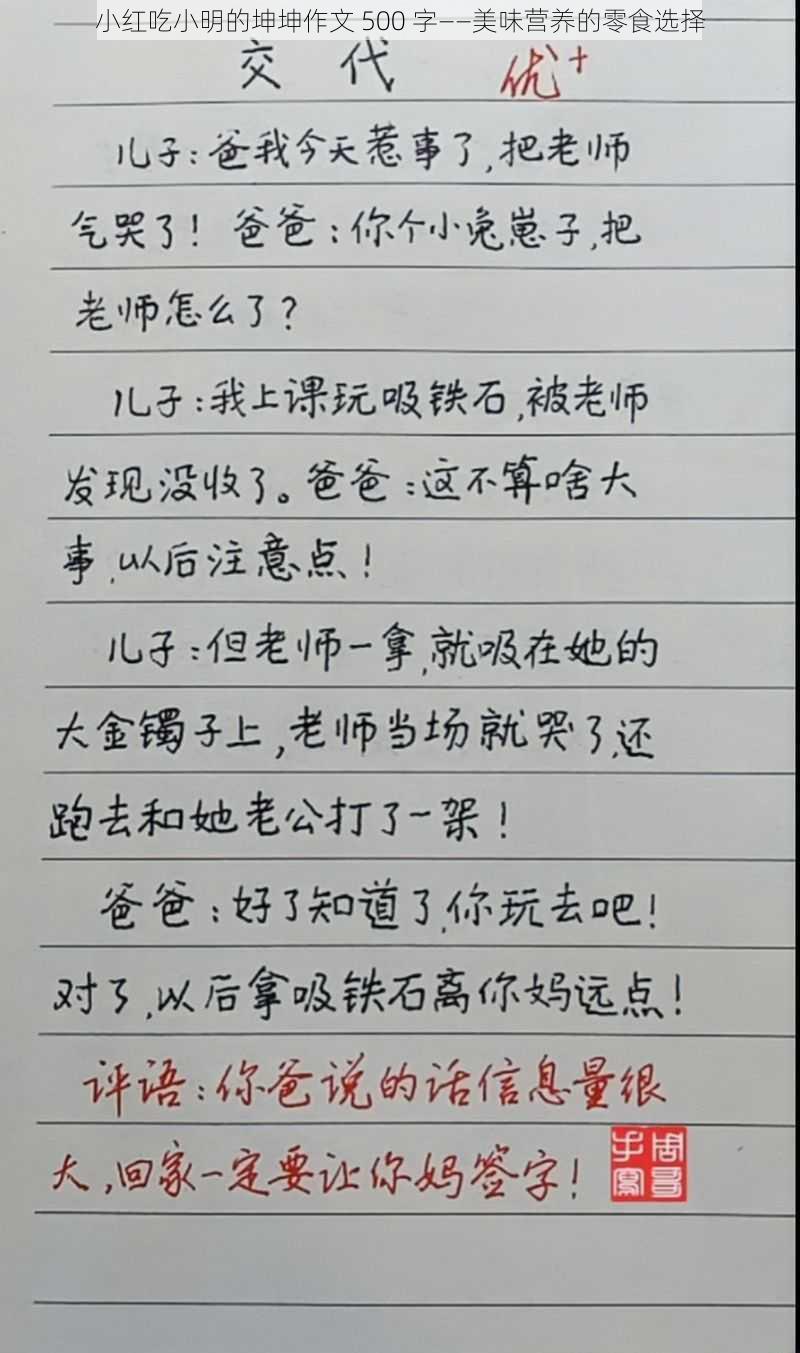 小红吃小明的坤坤作文 500 字——美味营养的零食选择
交 代 优+
儿子:爸我今天惹事了,把老师
气哭了! 爸爸:你个小兔崽子,把
老师怎么了?
儿子:我上课玩吸铁石,被老师
发现没收了。爸爸:这不算啥大
事,以后注意点!
儿子:但老师一拿,就吸在她的
大金镯子上,老师当场就哭了,还
跑去和她老公打了一架!
爸爸:好了知道了,你玩去吧!
对了,以后拿吸铁石离你妈远点!
评语:你爸说的话信息量很
大,回家一定要让你妈签字!
周哥手写